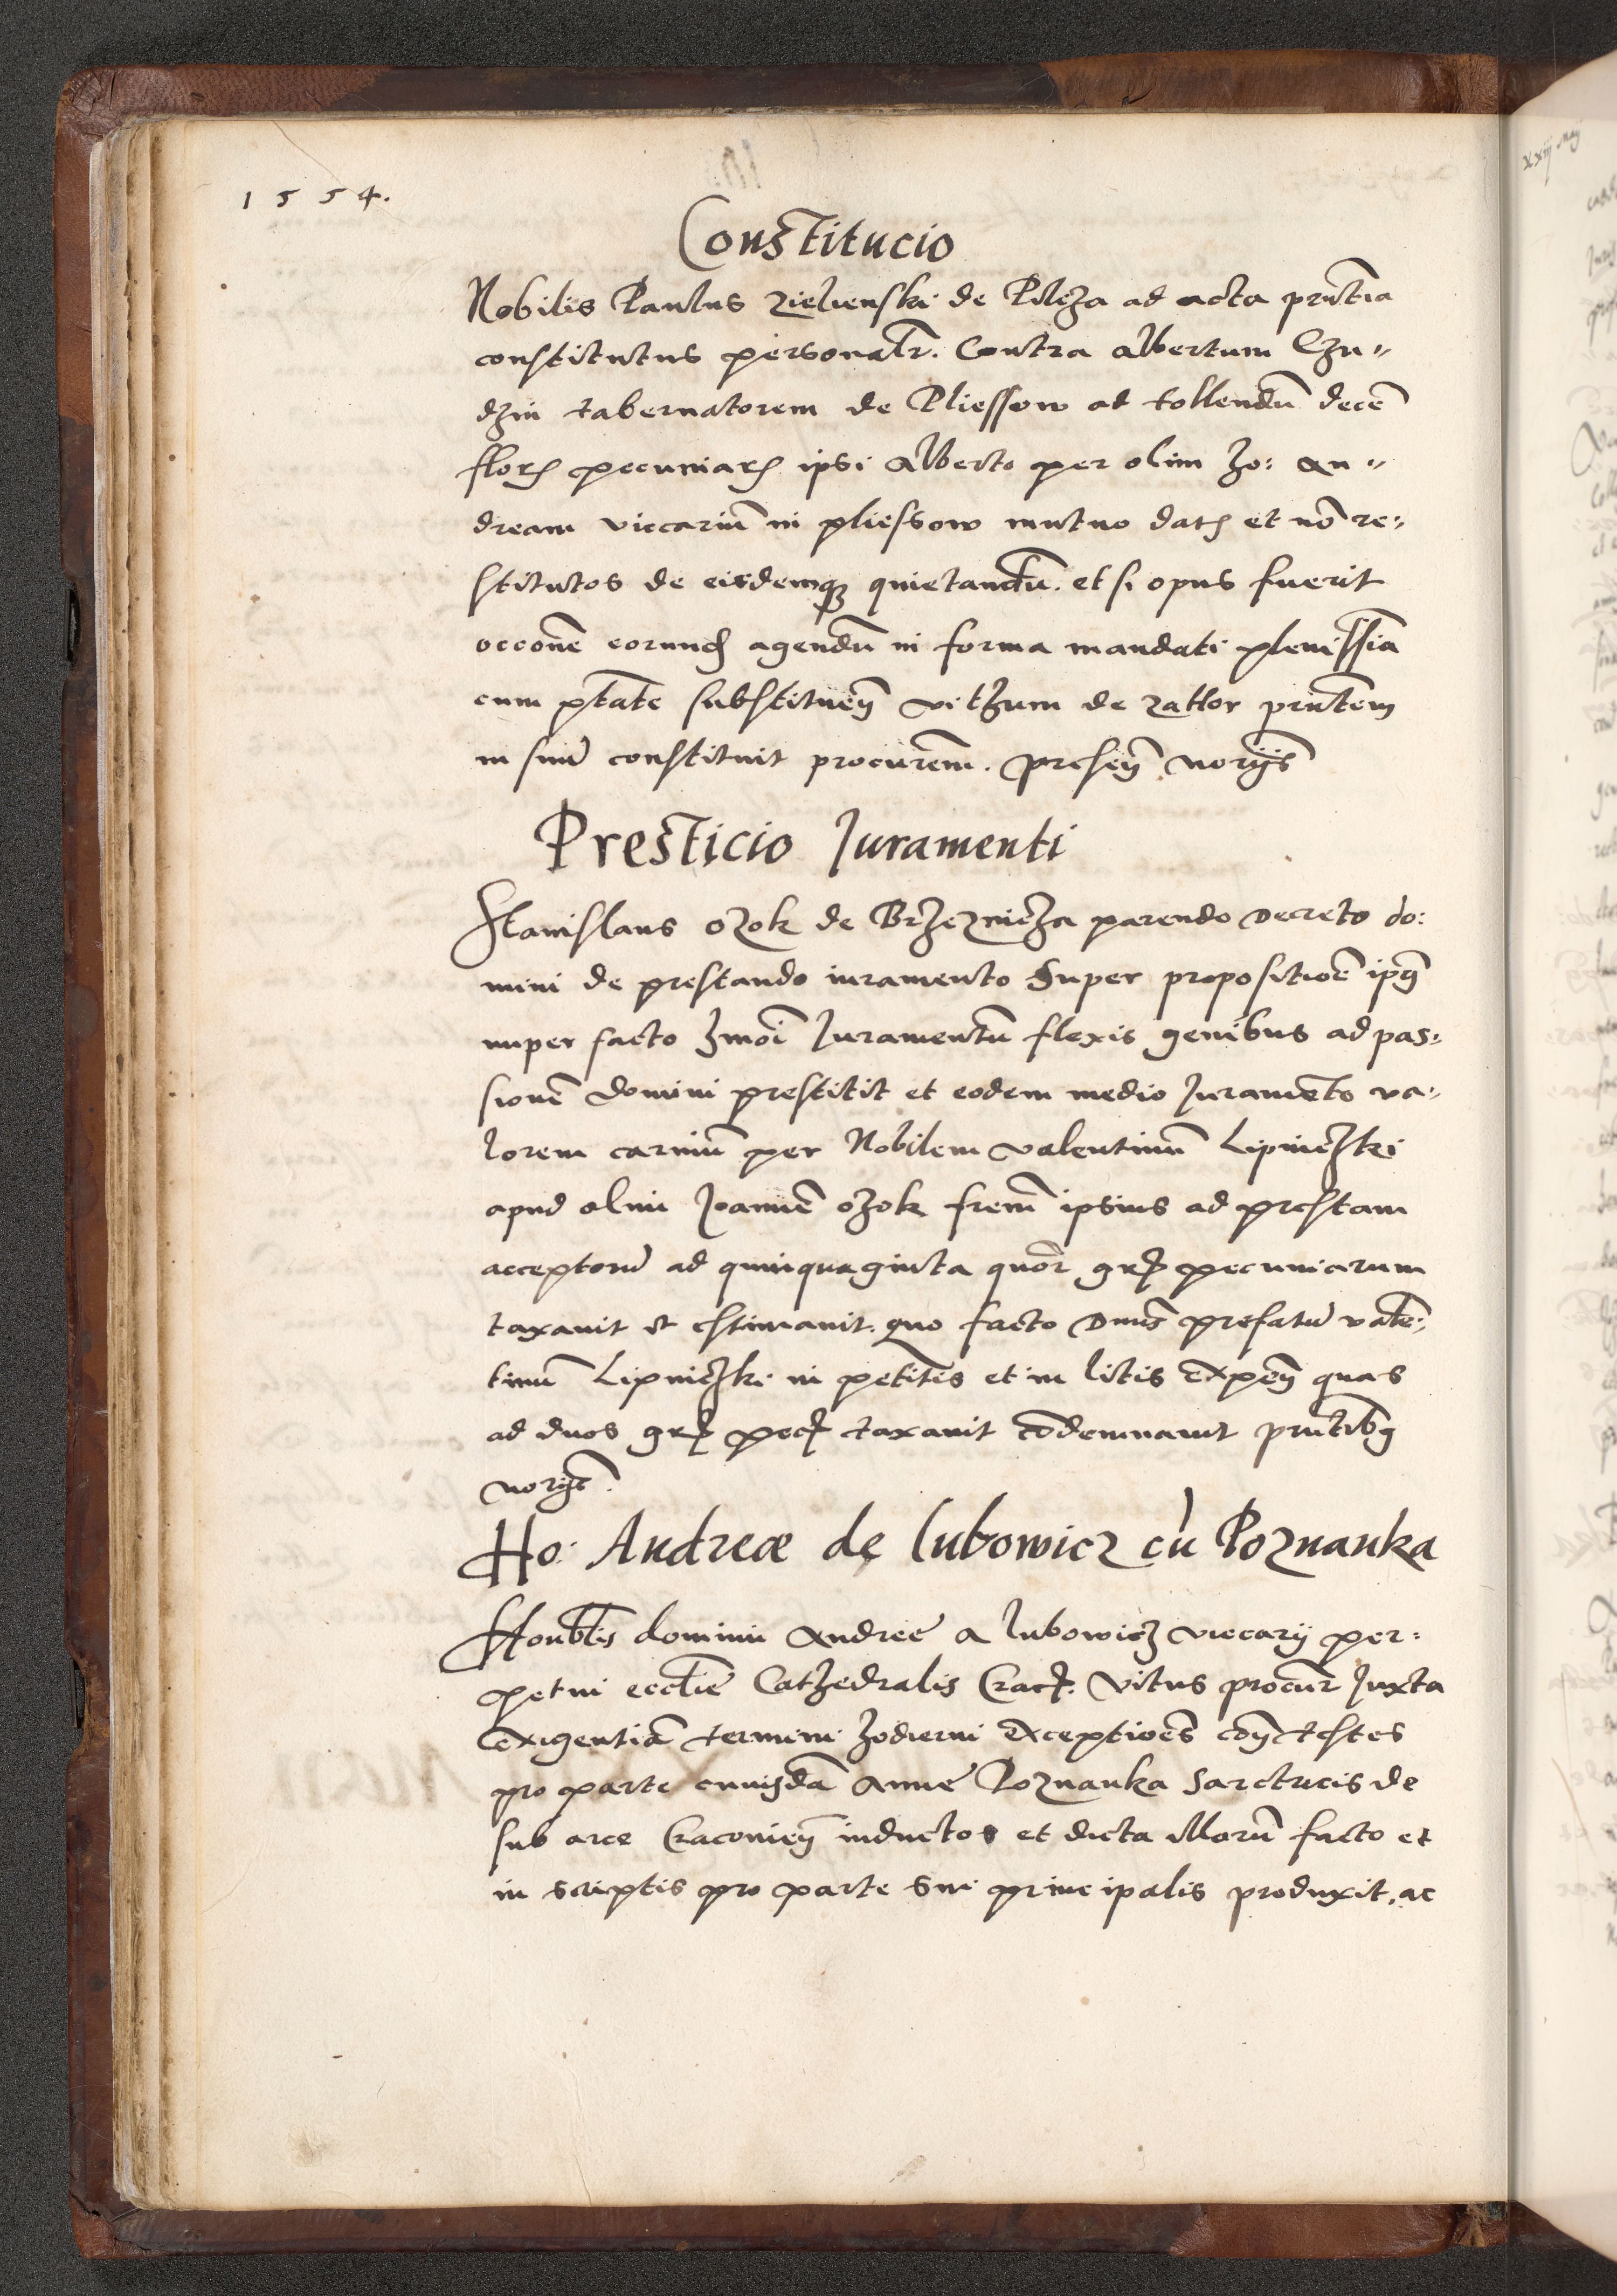 1554.
Constitucio
Nobilis Paulus Zielienski de Pilcza ad acta prntia
constitutus personalr. Contra Albertum Czu„
dzin tabernatorem de Pliessow ad tollendū decē
flor pecuniar ipsi Alberto per olim ho: An„
dream viccariū in pliessow mutuo dat et nō re„
stitutos de eisdemqz quietandū. et si opus fuerit
occōne eorund agendū in forma mandati plenissīa
cum ptāte substituen vithum de zathor prntem
in sui constituit procurem. presen norijs
Presticio Juramenti
Stanislaus Ozok de Brzeznicza parendo Decreto do:
mini de prestando iuramento super propositioē ipȝ
nuper facto hmōi Juramentū flexis genibus ad pas„
sionē domini prestitit et eodem medio Juramēto va„
lorem carniū per Nobilem valentinū Lipniczki
apud olim Joannē Ozok frem ipsius ad prestam
acceptorū ad quinquaginta quōr gr pecuniarum
taxavit et estimavit. quo facto Dnus prefatū valē„
tinū Lipniczki in petitēs et in litis expen quas
ad duos gr pec taxavit cōdemnavit prntibȝ
norijs.
Ho: Andreæ de Lubowicz cù Poznanka
Honblis domini Andree a Lubowicz viecarij per:
petui ecclie Cathedralis Crac. Vitus procur Juxta
exigentiā termini hodierni exceptioēs con testes
pro parte cuiusdā Anne Poznanka Sartricis de
sub arce Cracovien inductos et dicta illorū facto et
in scriptis pro parte sui principalis produxit, ac